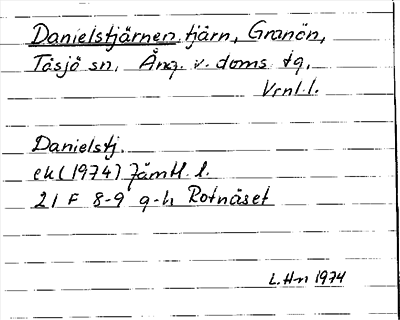 Danielstjärnen tjärn, Granön,
Tåsjö sn, Ång. v. doms. tg,
Vrnl. l.
Danielstj.
ek (1974) Jämtl. l.
21 F 8-9 g-h Rotnäset
L. H-n 1974